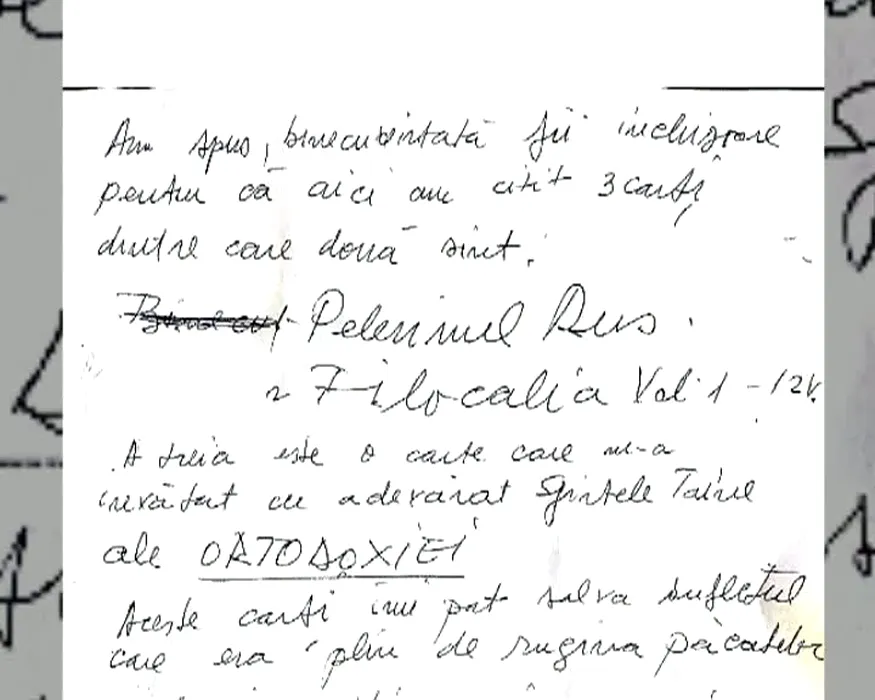 Am spus, binecuvîntată fii închisoare
pentru că aici am citit 3 cărți
dintre care două sînt.
Pelerinul Rus.
Filocalia Vol. 1 - 12 V.
A treia este o carte care m-a
învățat cu adevărat Sfintele Taine
ale ORTODOXIEI
Aceste cărți îmi pot salva sufletul
care era plin de rugina păcatelor